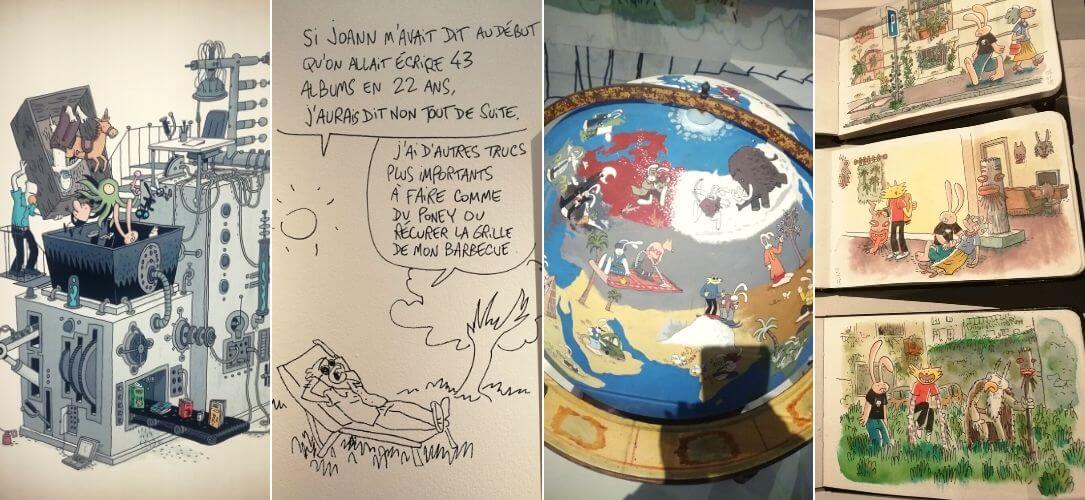 SI JOANN M'AVAIT DIT AU DÉBUT
QU'ON ALLAIT ÉCRIRE 43
ALBUMS EN 22 ANS,
J'AURAIS DIT NON TOUT DE SUITE.
J'AI D'AUTRES TRUCS
PLUS IMPORTANTS
À FAIRE COMME
DU PONEY OU
RÉCURER LA GRILLE
DE MON BARBECUE.
P